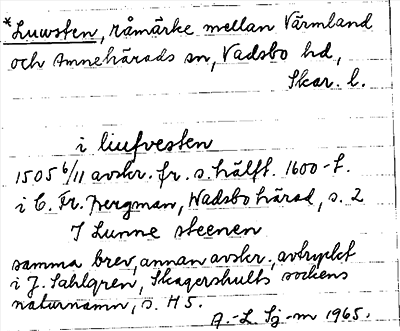 *Luwsten, råmärke mellan Värmland
och Amnehärads sn, Vadsbo hd,
Skar. l.
i liufvesten
1505 6/11 avskr. fr. s. hälft. 1600-t.
i C. Fr. Bergman, Wadsbo härad, s. 2
I Lunne steenen
samma brev, annan avskr., avtryckt
i J. Sahlgren, Skagershults sockens
naturnamn, s. H5.
A.-L. Sj-m 1965.